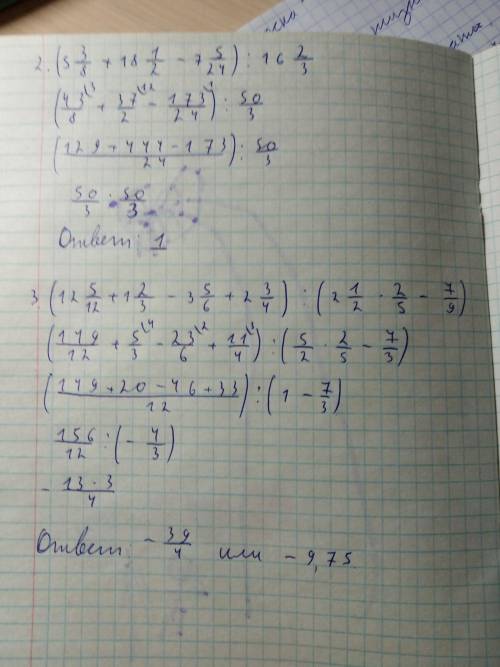 2. (5 3/8 + 18 1/2 - 7 5/24) : 16 2/3
(43/8 \3 + 37/2 \12 - 173/24 \1) : 50/3
(129+444-173 / 24) : 50/3
50/3 : 50/3
Ответ: 1
3. (12 5/12 + 1 2/3 - 3 5/6 + 2 3/4) : (2 1/2 · 2/5 - 7/9)
(149/12 + 5/3 \4 - 23/6 \2 + 11/4 \3) : (5/2 · 2/5 - 7/3)
(149+20-46+33 / 12) : (1 - 7/3)
156/12 : (- 4/3)
- 13·3/4
Ответ: - 39/4 или - 9,75